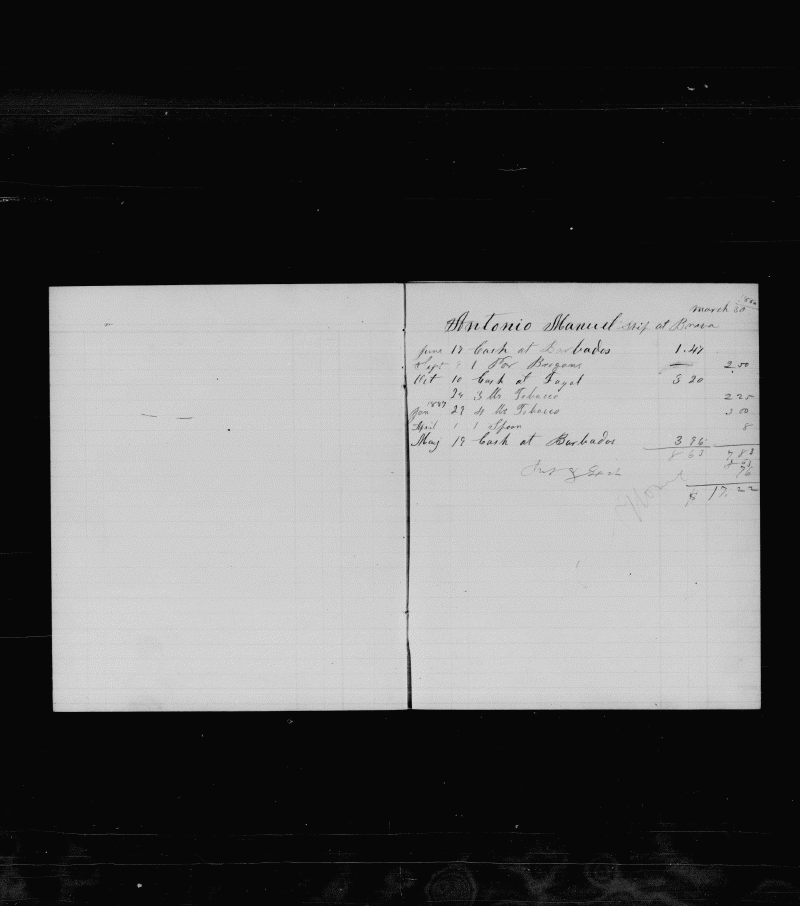 march 30
Antonio Manuel Ship at Brava
June 17 Cash at Barbados 1.47
Sept 1 Par Brogans 2.50
Oct 10 Cash at Fayal 3 20
24 3 lbs Tobacco 2 25
1887
Jan 29 4 lbs Tobacco 3 00
April 1 1 Spoon 8
May 19 Cash at Barbados 3 96
8 63 7 83
8 63
Ins & 76
$ 17.22